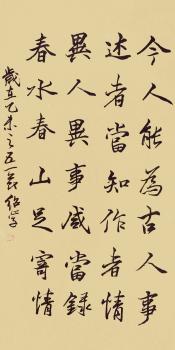 今人能為古人事
述者當知作者情
異人異事感當錄
春水春山足寄情
歲在乙未之五一節